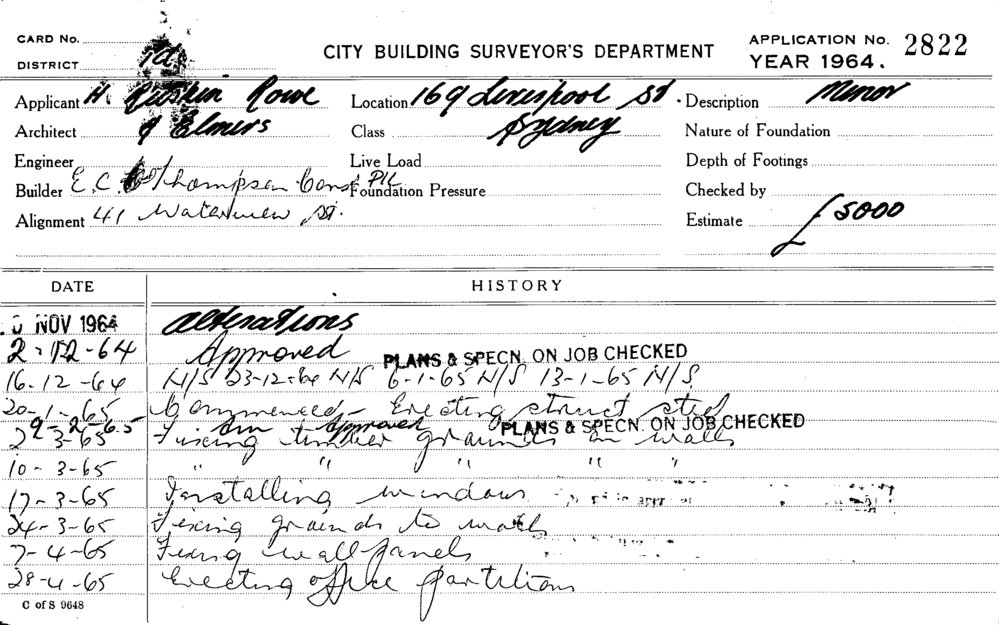 CARD No.
DISTRICT
CITY BUILDING SURVEYOR'S DEPARTMENT
APPLICATION No. 2822
YEAR 1964.
Applicant H. Ruskin Rowe Location 169 Liverpool St. Description Minor
Architect & Elmers Class Sydney Nature of Foundation
Engineer Live Load Depth of Footings
Builder E.C. Thompson Cons P/L Foundation Pressure Checked by
Alignment 41 Waterview St. Estimate £5000
DATE HISTORY
NOV 1964 Alterations
2-12-64 Approved PLANS & SPECN. ON JOB CHECKED
16-12-64 N/S 23-12-64 N/S 6-1-65 N/S 13-1-65 N/S
20-1-65 Commenced - Erecting struct steel
9-2-65 Am approved PLANS & SPECN. ON JOB CHECKED
2-3-65 Fixing timber grounds on walls
10-3-65 " " " " "
17-3-65 Installing windows
24-3-65 Fixing grounds to walls
7-4-65 Fixing wall panels
28-4-65 Erecting office partitions
C of S 9648